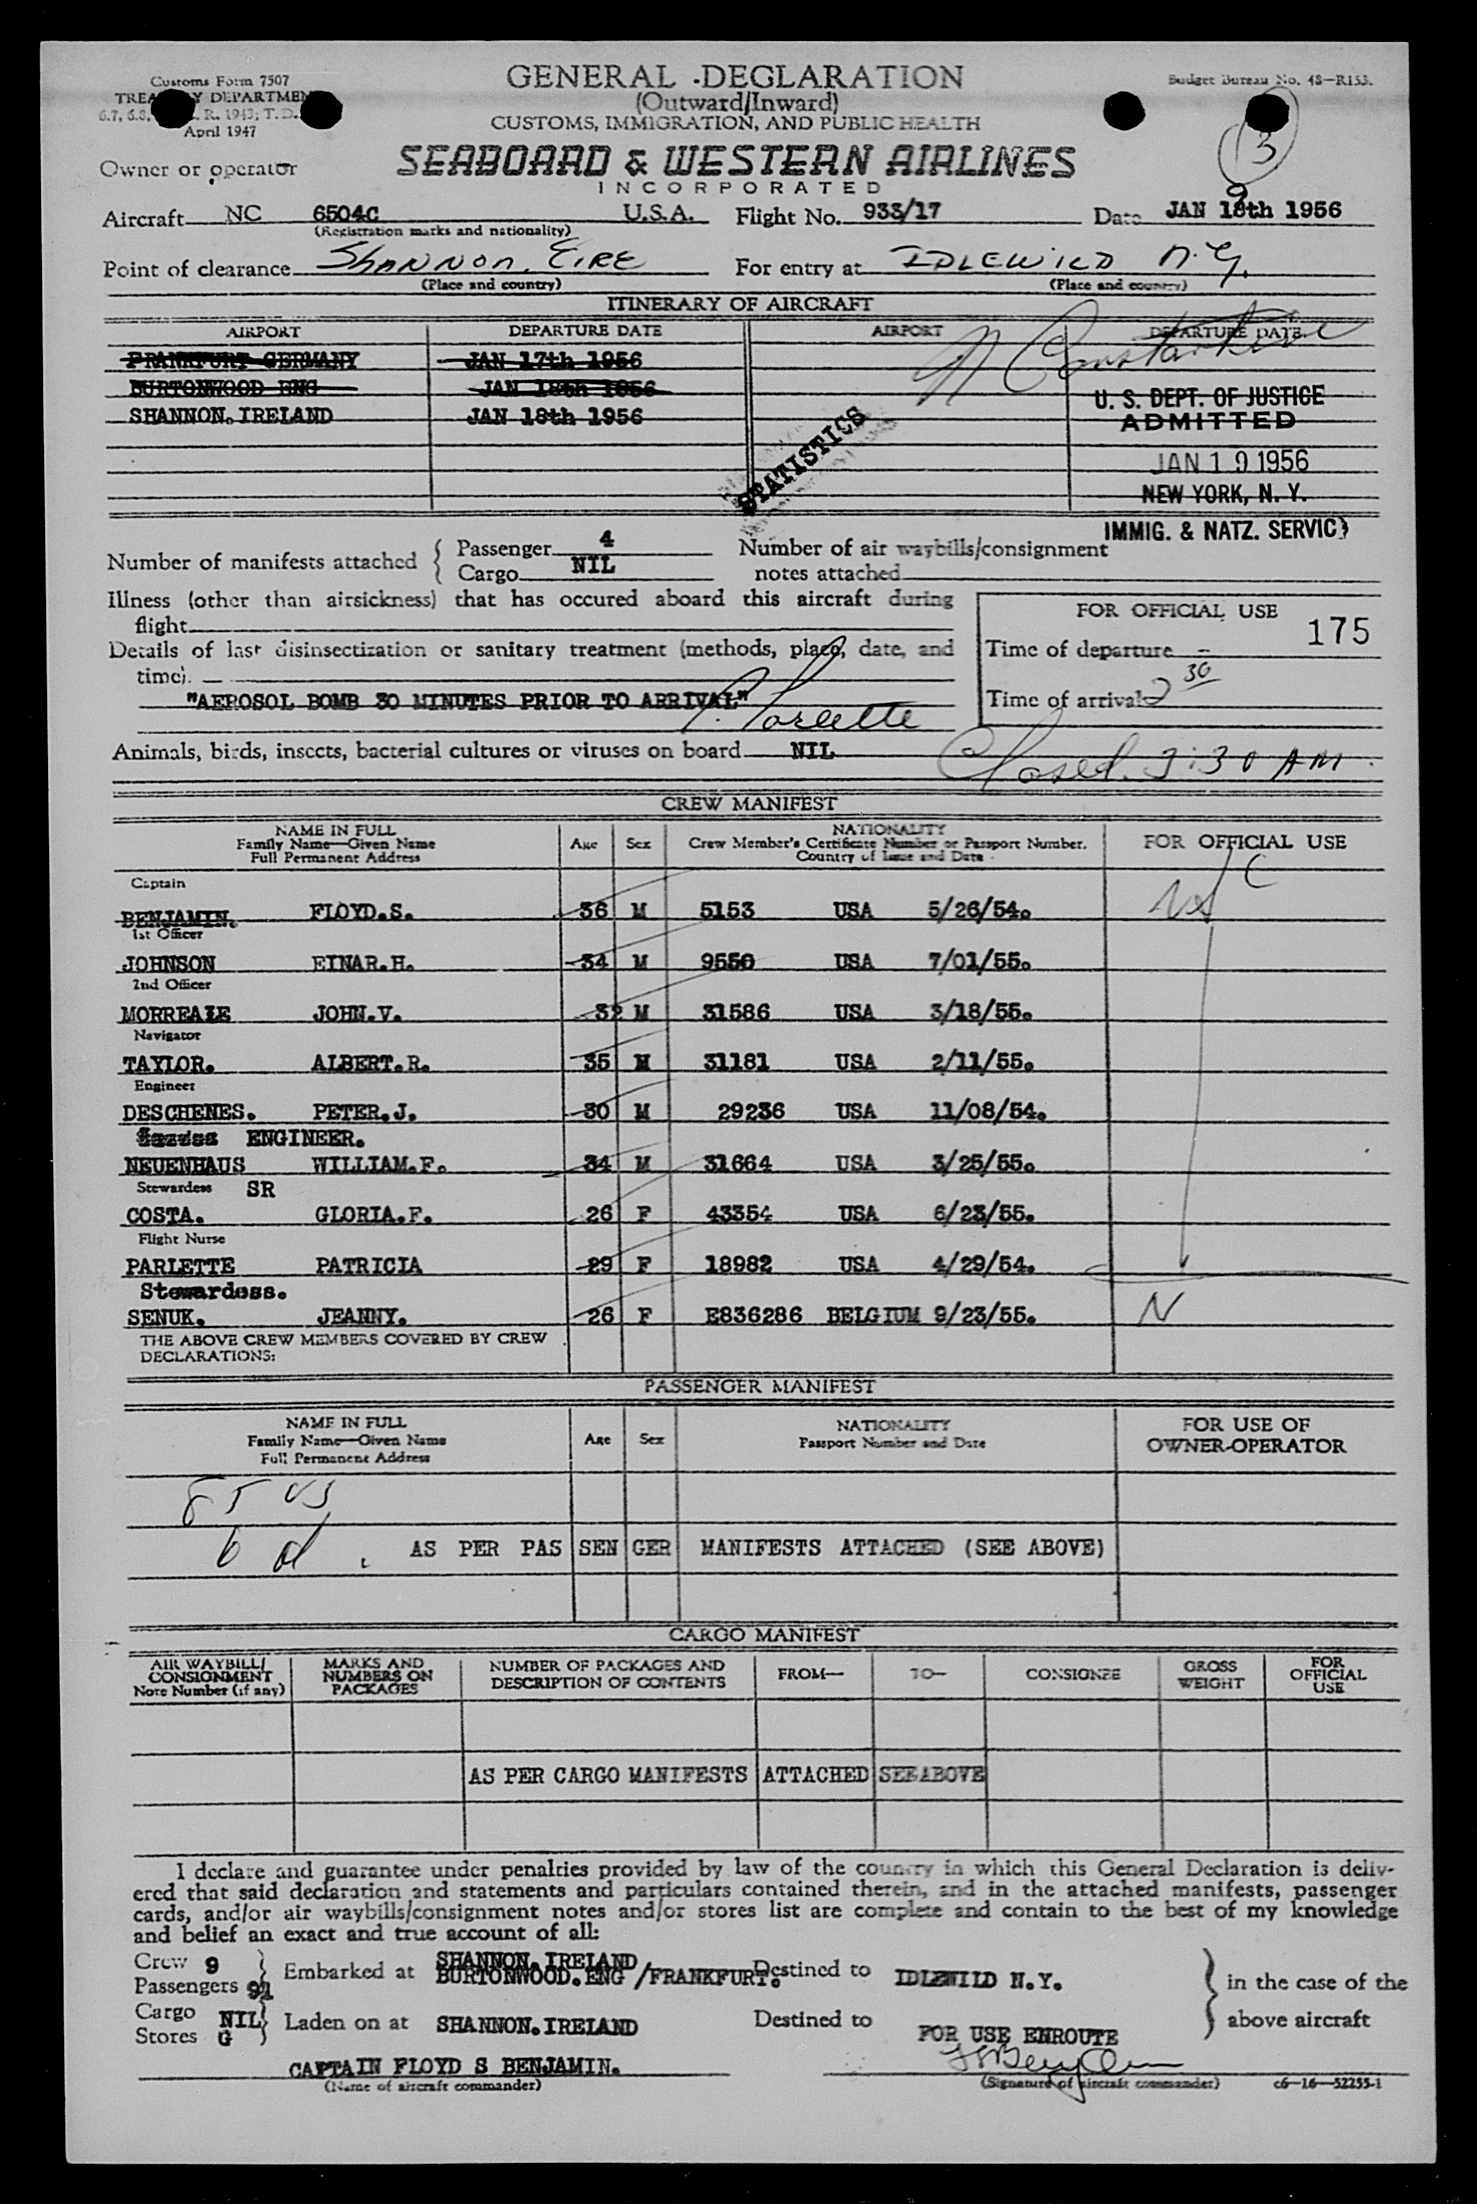 Customs Form 7507
GENERAL DECLARATION
Budget Bureau No. 48-R153.
TREA Y DEPARTMEN
(Outward/Inward)
6.7, 6.8, . R. 1943; T. D.
April 1947
CUSTOMS, IMMIGRATION, AND PUBLIC HEALTH
3
Owner or operator
SEABOARD & WESTERN AIRLINES
INCORPORATED
Aircraft NC 6504C U.S.A. Flight No. 933/17 Date JAN 18th 1956
9
(Registration marks and nationality)
Point of clearance SHANNON, EIRE For entry at IDLEWILD N.Y.
(Place and country) (Place and country)
ITINERARY OF AIRCRAFT
AIRPORT DEPARTURE DATE AIRPORT DEPARTURE DATE
FRANKFURT GERMANY JAN 17th 1956
BURTONWOOD ENG JAN 18th 1956
SHANNON. IRELAND JAN 18th 1956
N Constantine
U. S. DEPT. OF JUSTICE
ADMITTED
JAN 19 1956
NEW YORK, N. Y.
IMMIG. & NATZ. SERVIC
STATISTICS
Number of manifests attached { Passenger 4
Cargo NIL
Number of air waybills/consignment
notes attached
Illness (other than airsickness) that has occured aboard this aircraft during
flight
FOR OFFICIAL USE
175
Details of last disinsectization or sanitary treatment (methods, place, date, and
time).
Time of departure -
"AEROSOL BOMB 30 MINUTES PRIOR TO ARRIVAL"
Time of arrival 2 30
P. Parlette
Animals, birds, insects, bacterial cultures or viruses on board NIL
Closed 3:30 AM
CREW MANIFEST
NAME IN FULL
Family Name—Given Name
Full Permanent Address
Age Sex
NATIONALITY
Crew Member's Certificate Number or Passport Number.
Country of Issue and Date
FOR OFFICIAL USE
Captain
BENJAMIN. FLOYD.S. 36 M 5153 USA 5/26/54.
1st Officer
JOHNSON EINAR.H. 34 M 9550 USA 7/01/55.
2nd Officer
MORREALE JOHN.V. 32 M 31586 USA 3/18/55.
Navigator
TAYLOR. ALBERT.R. 35 M 31181 USA 2/11/55.
Engineer
DESCHENES. PETER.J. 30 M 29236 USA 11/08/54.
ENGINEER.
NEUENHAUS WILLIAM.F. 34 M 31664 USA 3/25/55.
Stewardess SR
COSTA. GLORIA.F. 26 F 43354 USA 6/23/55.
Flight Nurse
PARLETTE PATRICIA 29 F 18982 USA 4/29/54.
Stewardess.
SENUK. JEANNY. 26 F E836286 BELGIUM 9/23/55. N
THE ABOVE CREW MEMBERS COVERED BY CREW
DECLARATIONS:
PASSENGER MANIFEST
NAME IN FULL
Family Name—Given Name
Full Permanent Address
Age Sex
NATIONALITY
Passport Number and Date
FOR USE OF
OWNER-OPERATOR
85 US
6 al
AS PER PAS SEN GER MANIFESTS ATTACHED (SEE ABOVE)
CARGO MANIFEST
AIR WAYBILL/
CONSIGNMENT
Note Number (if any)
MARKS AND
NUMBERS ON
PACKAGES
NUMBER OF PACKAGES AND
DESCRIPTION OF CONTENTS
FROM— TO— CONSIGNEE
GROSS
WEIGHT
FOR
OFFICIAL
USE
AS PER CARGO MANIFESTS ATTACHED SEE ABOVE
I declare and guarantee under penalties provided by law of the country in which this General Declaration is deliv-
ered that said declaration and statements and particulars contained therein, and in the attached manifests, passenger
cards, and/or air waybills/consignment notes and/or stores list are complete and contain to the best of my knowledge
and belief an exact and true account of all:
Crew 9
Passengers 91
Embarked at SHANNON. IRELAND
BURTONWOOD. ENG /FRANKFURT.
Destined to IDLEWILD N.Y.
in the case of the
above aircraft
Cargo NIL
Stores G
Laden on at SHANNON. IRELAND Destined to FOR USE ENROUTE
CAPTAIN FLOYD S BENJAMIN.
(Name of aircraft commander)
FSBenjamin
(Signature of aircraft commander)
c6—16—52255-1